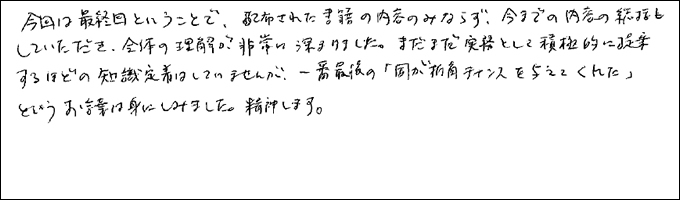 今回は最終回ということで、配布された書籍の内容のみならず、今までの内容の総括も
していただき、全体の理解が非常に深まりました。まだまだ実務として積極的に提案
するほどの知識定着はしていませんが、一番最後の「国が折角チャンスを与えてくれた」
というお言葉は身にしみました。精神します。